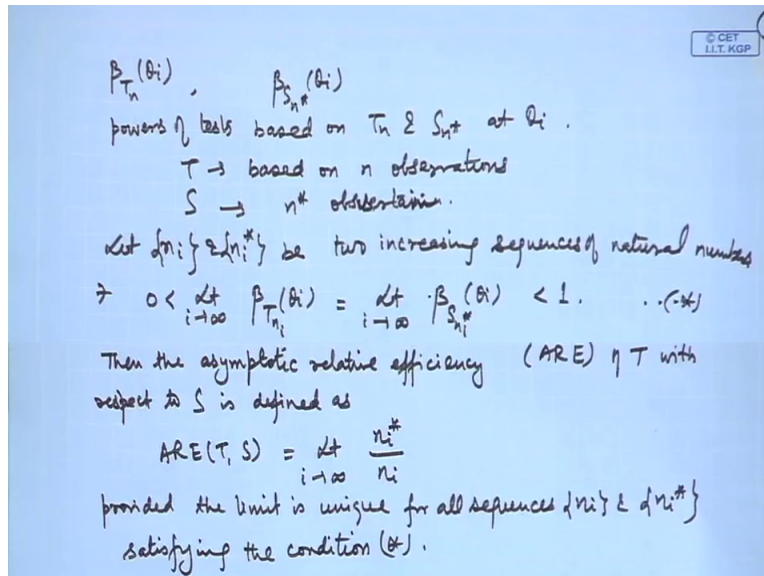 © CET
I.I.T. KGP
β_{T_n}(θi) , β_{S_{n*}}(θi)
powers of tests based on Tn & Sn* at θi .
T → based on n observations
S → n* observations.
Let {ni} & {ni*} be two increasing sequences of natural numbers
∋ 0 < Lt_{i→∞} β_{T_{ni}}(θi) = Lt_{i→∞} β_{S_{ni*}}(θi) < 1. ...(*)
Then the asymptotic relative efficiency (ARE) of T with
respect to S is defined as
ARE(T, S) = Lt_{i→∞} ni*/ni
provided the limit is unique for all sequences {ni} & {ni*}
satisfying the condition (*).